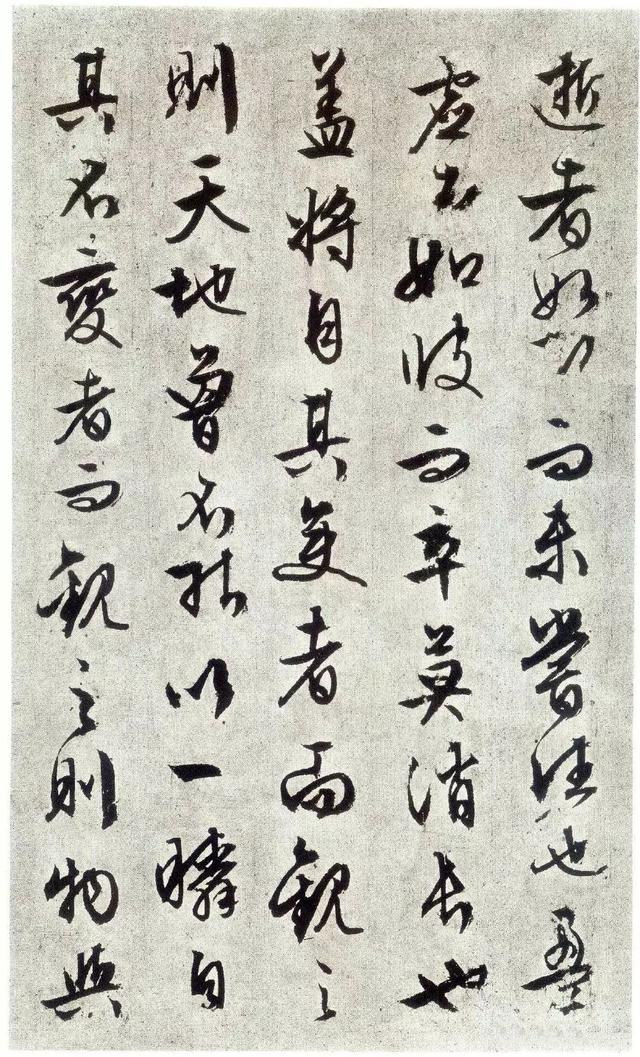 逝者如斯而未嘗往也盈
虛者如彼而卒莫消長也
蓋將自其變者而觀之
則天地曾不能以一瞬自
其不變者而觀之則物與